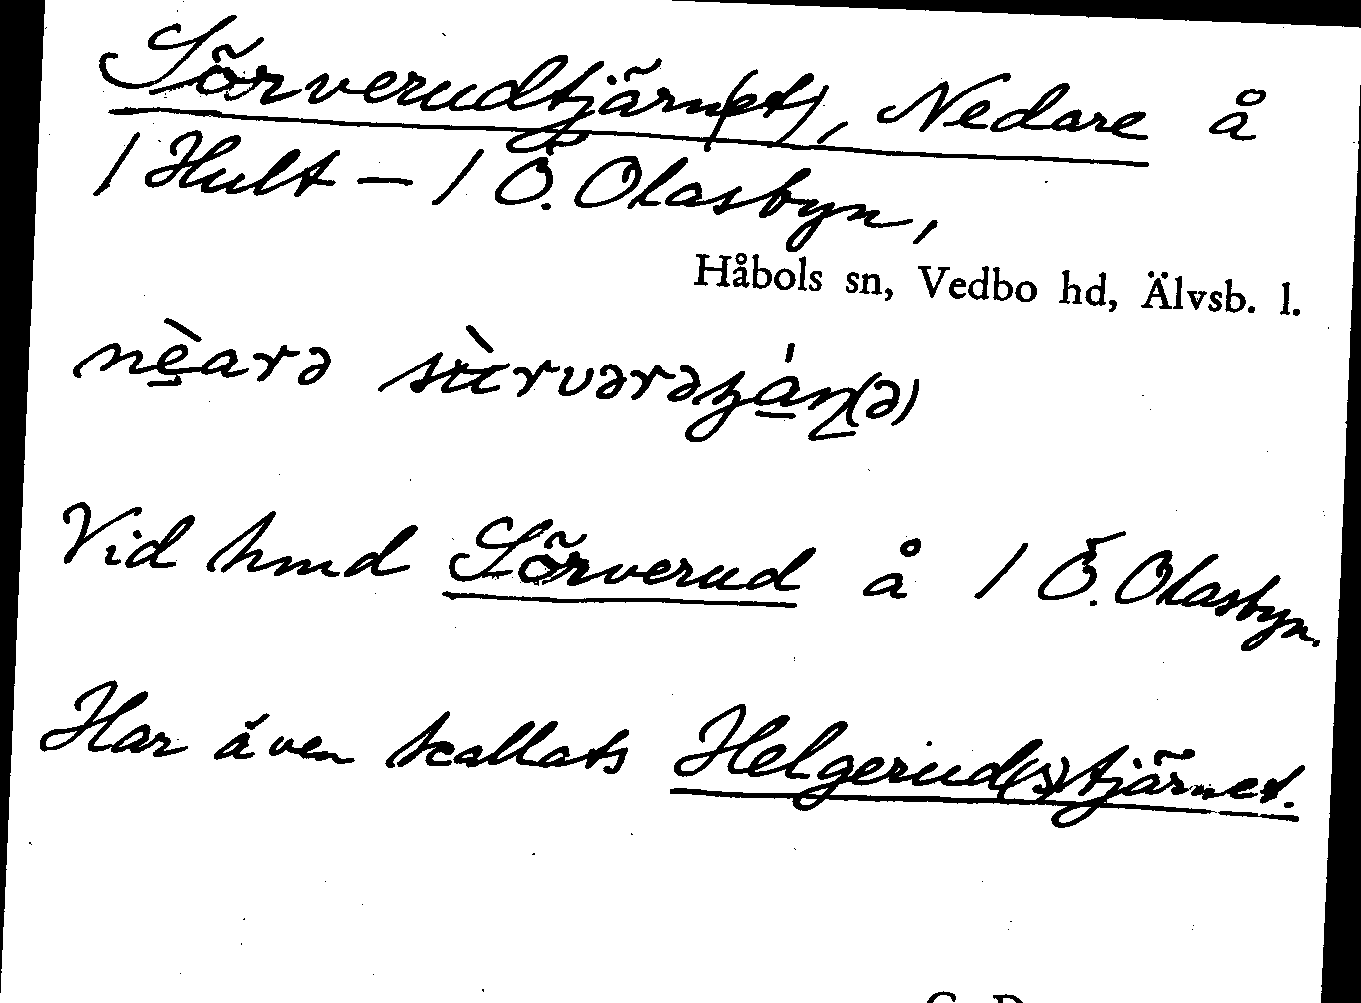 Sörverudtjärn(et), Nedare å
1 Hult – 1 Ö. Olasbyn,
Håbols sn, Vedbo hd, Älvsb. l.
Vid hmd Sörverud å 1 Ö. Olasbyn.
Har även kallats Helgerud(s)tjärnet.